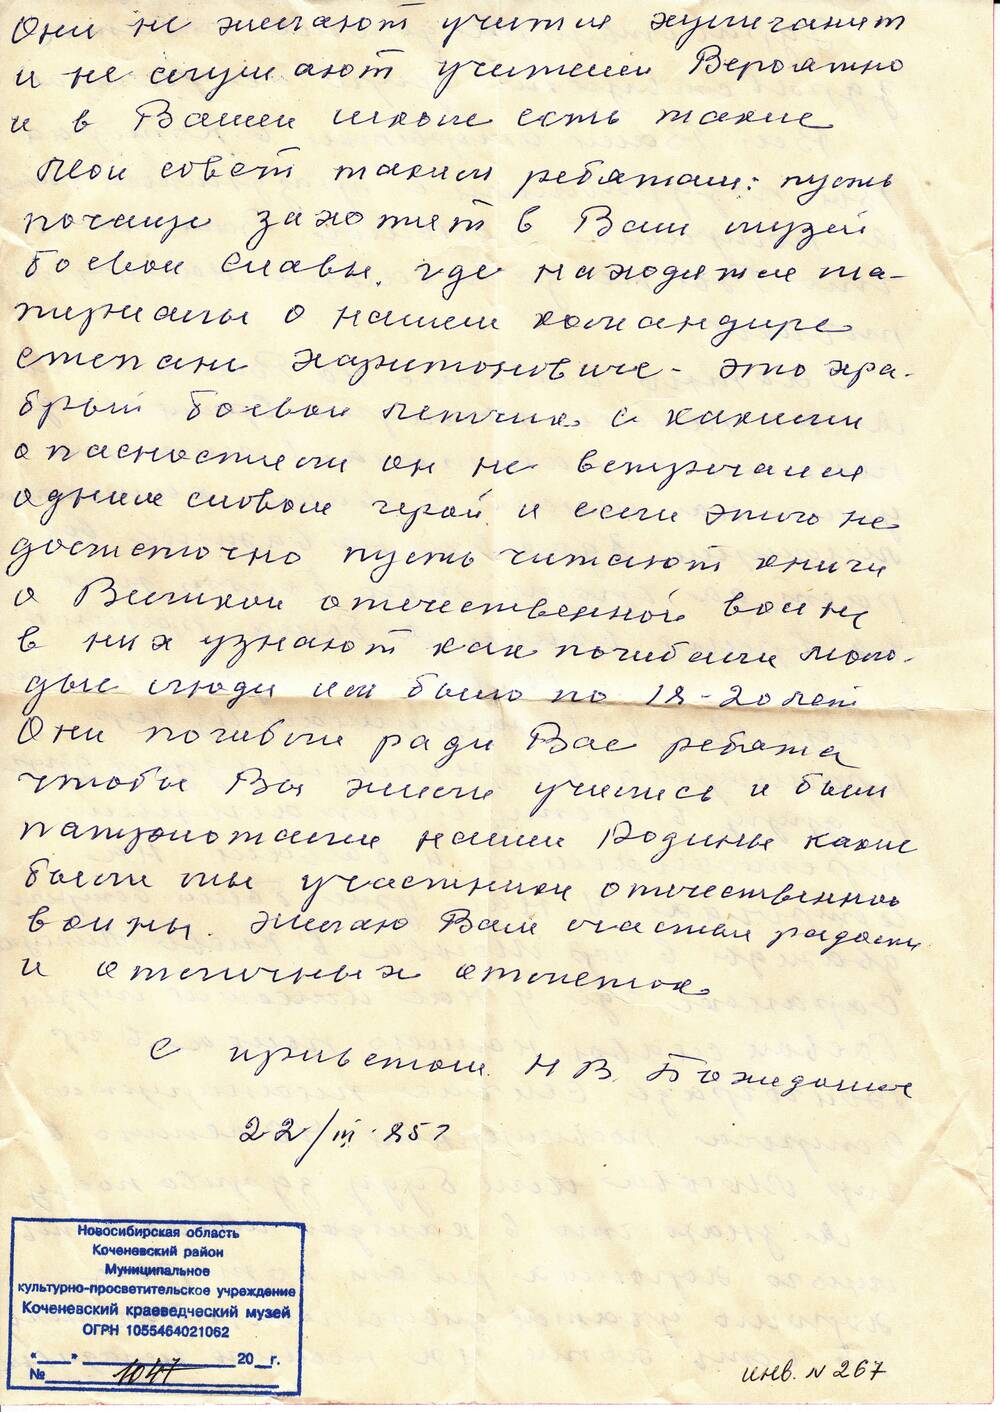 Они не желают учится хулиганят
и не слушают учителей Вероятно
и в Вашей школе есть такие
Мой совет таким ребятам: пусть
почаще заходят в Ваш музей
боевой славы, где находятся ма-
териалы о нашем командире
Степане Харитоновиче - это хра-
брый боевой летчик с какими
опасностями он не встречался
одним словом герой и если этого не
достаточно пусть читают книги
о Великой отечественной войне
в них узнают как погибали моло-
дые люди им было по 18-20 лет
Они погибли ради Вас ребята
чтобы Вы жили учились и были
патриотами нашей Родины какие
были мы участники отечественной
войны. Желаю Вам счастья радости
и отличных отметок
С приветом Н В.
22/III·85г
Новосибирская область
Коченевский район
Муниципальное
культурно-просветительское учреждение
Коченевский краеведческий музей
ОГРН 1055464021062
"___" ________ 20__г.
№ 1047
инв. № 267